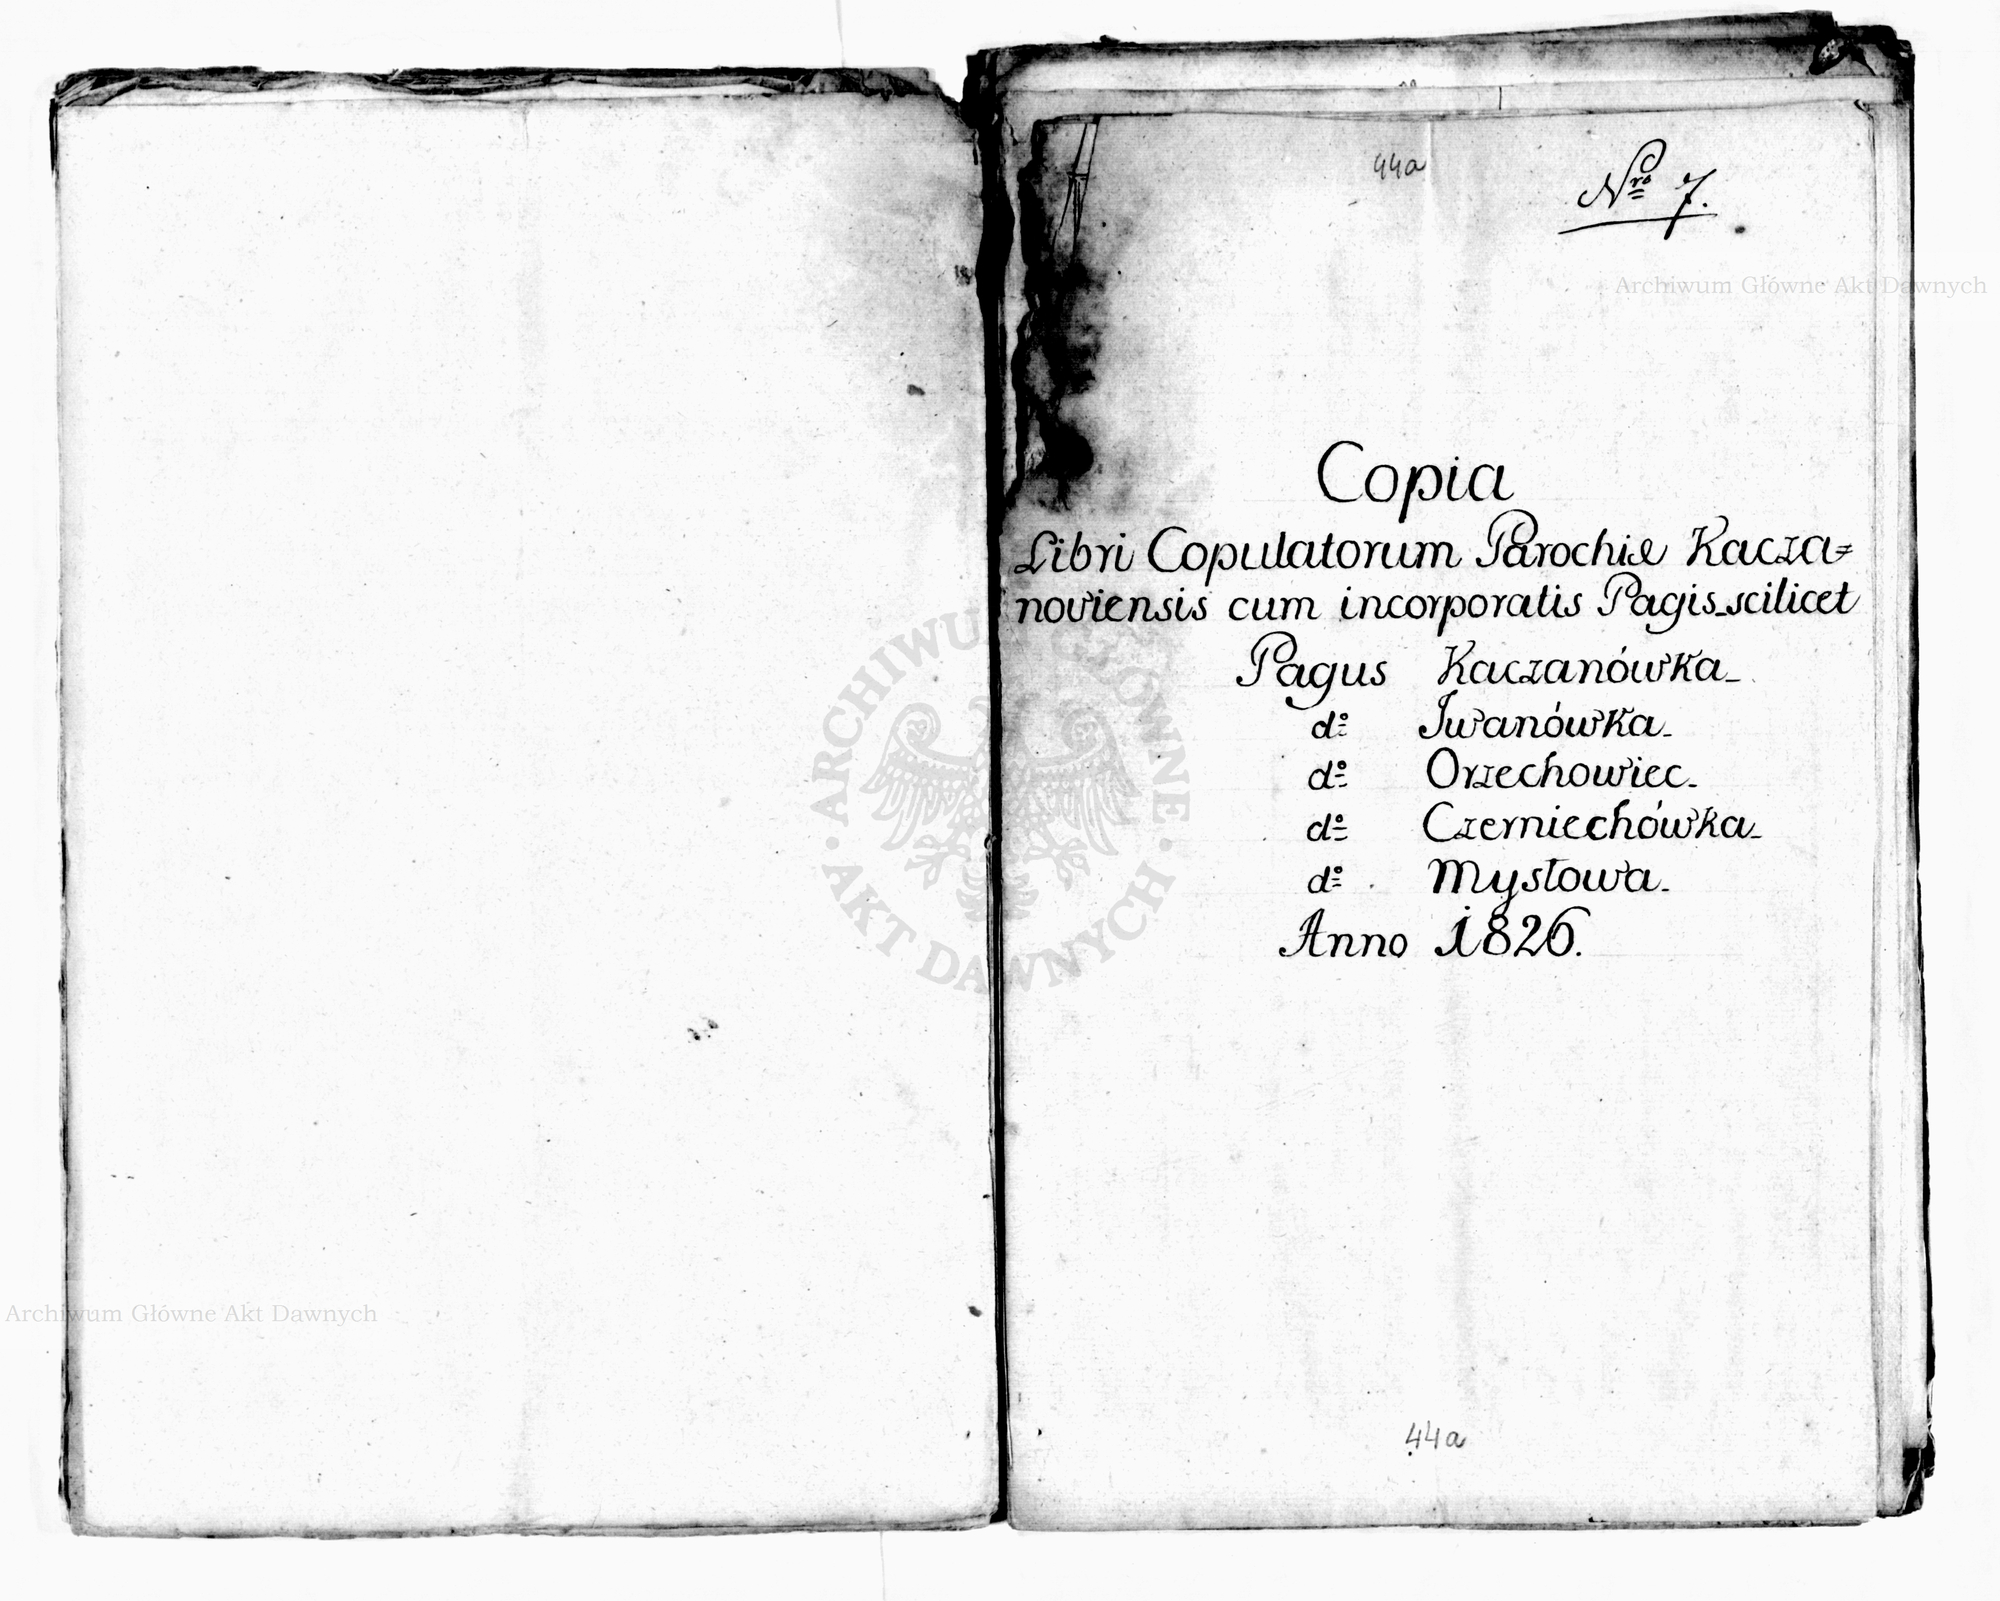 44a
Nro 7.
Archiwum Główne Akt Dawnych
Copia
Libri Copulatorum Parochiæ Kacza=
noviensis cum incorporatis Pagis scilicet
Pagus Kaczanówka
do Iwanówka
do Orzechowiec
do Czerniechówka
do Mysłowa
Anno 1826.
ARCHIWUM GŁÓWNE
AKT DAWNYCH
Archiwum Główne Akt Dawnych
44a